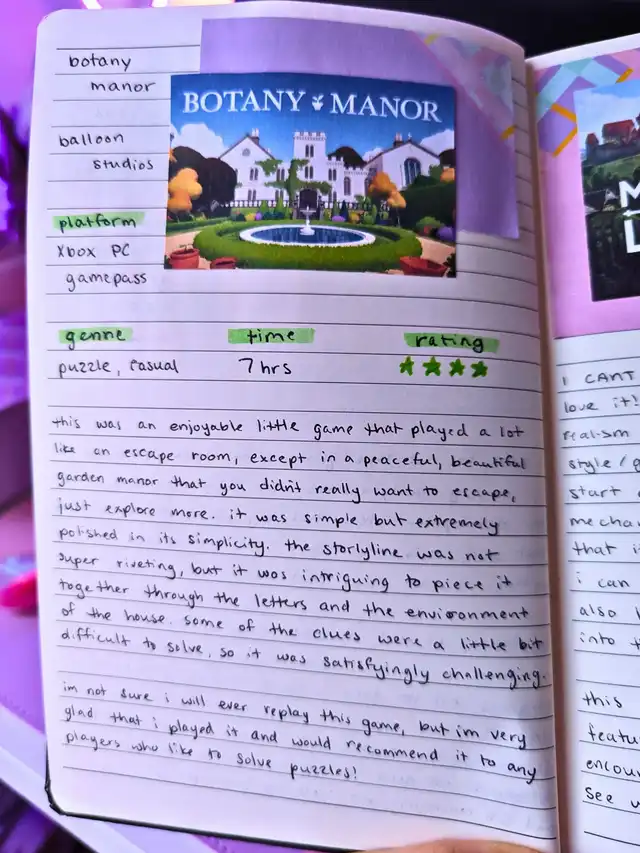 botany
manor
balloon
studios
platform
Xbox PC
gamepass
BOTANY MANOR
genre
time
rating
puzzle, casual
7 hrs
this was an enjoyable little game that played a lot
like an escape room, except in a peaceful, beautiful
garden manor that you didn't really want to escape,
just explore more. it was simple but extremely
polished in its simplicity. the storlyline was not
super riveting, but it was intriguing to piece it
together through the letters and the environment
of the house. some of the clues were a little bit
difficult to solve, so it was satisfyingly challenging.
im not sure i will ever replay this game, but im very
glad that i played it and would recommend it to any
players who like to solve puzzles!
M
L
I CANT
love it!
realism
style/
start
mecha
that i
i can
also
into
this
featu
encou
see